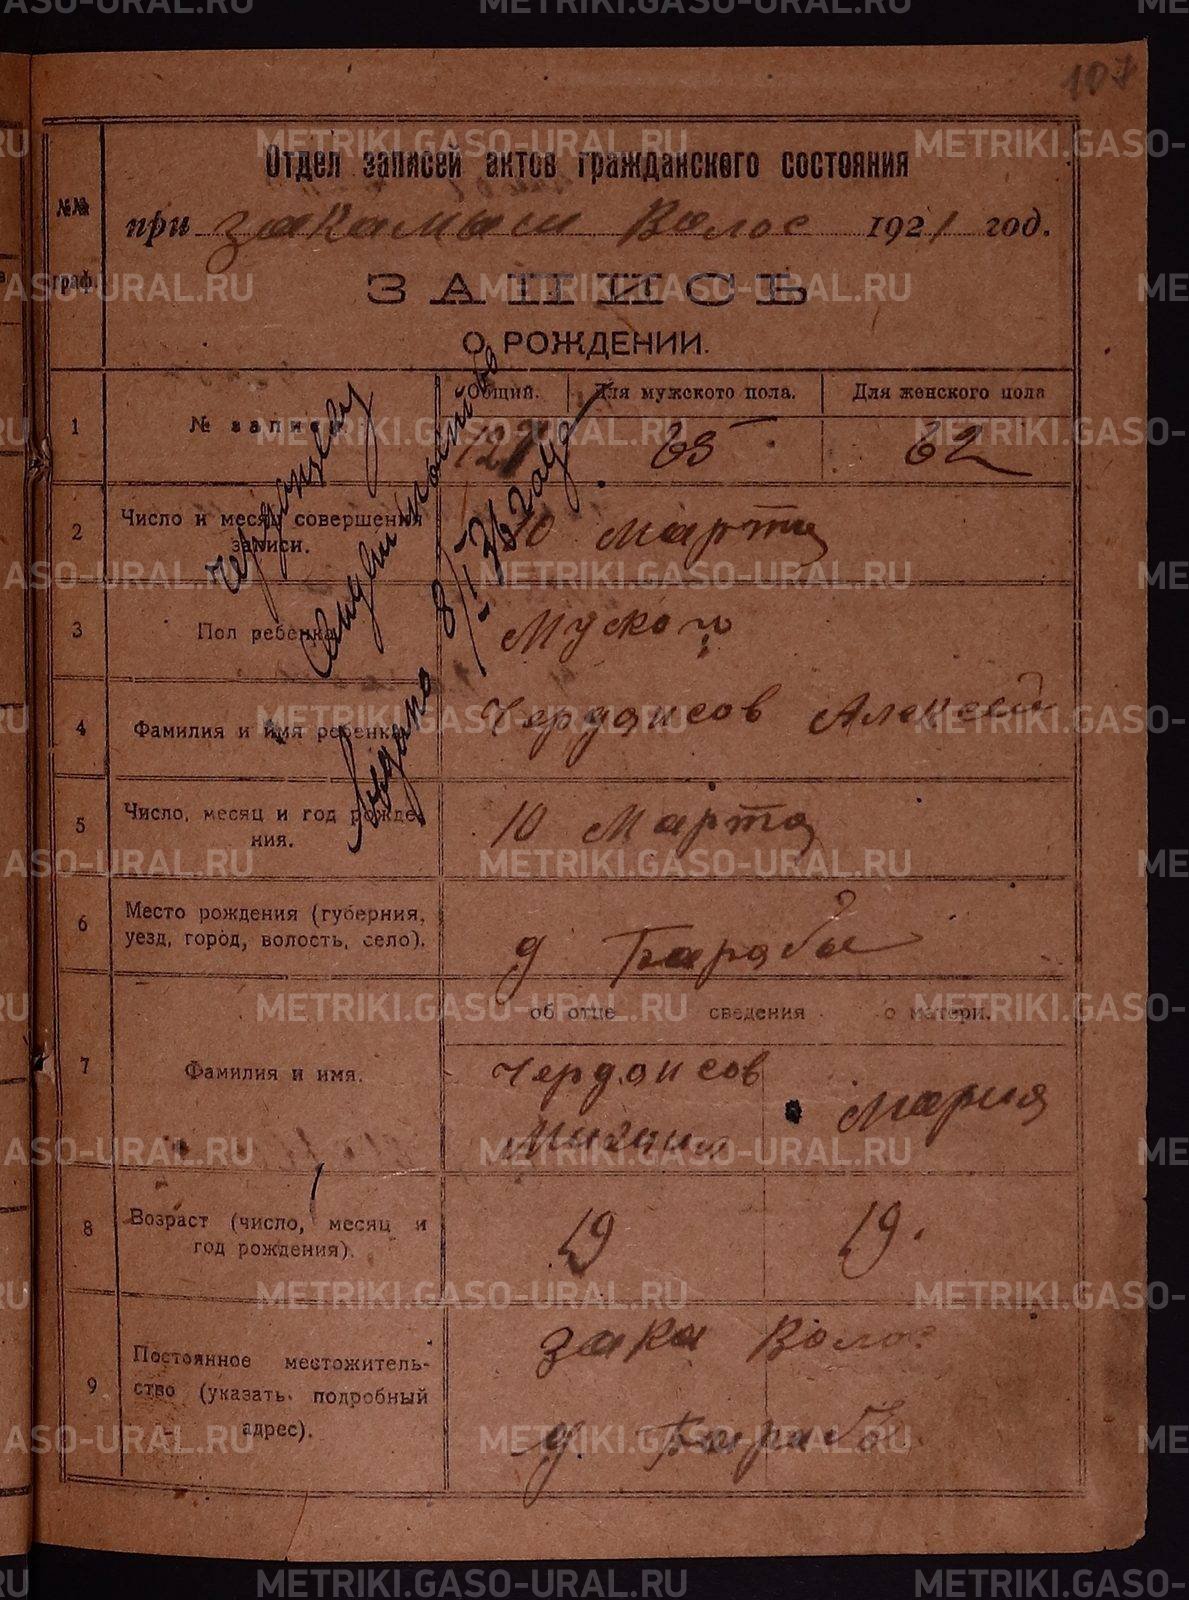 107
Отдел записей актов гражданского состояния
№№ граф.
при закамыш Волос 1921 год.
ЗАПИСЬ
О РОЖДЕНИИ.
Общий. Для мужского пола. Для женского пола
1 № записи 127 65 62
2 Число и месяц совершения записи. 10 марта
3 Пол ребенка Мускои
4 Фамилия и имя ребенка Чердонсов Алексей
5 Число, месяц и год рождения. 10 Марта
6 Место рождения (губерния, уезд, город, волость, село). д Барабы
об отце сведения о матери.
7 Фамилия и имя. Чердонсов Михаил Мария
8 Возраст (число, месяц и год рождения). 19 19.
9 Постоянное местожительство (указать подробный адрес). зака Волос
д. Барабы
Выдано 8/I 26 года
METRIKI.GASO-URAL.RU